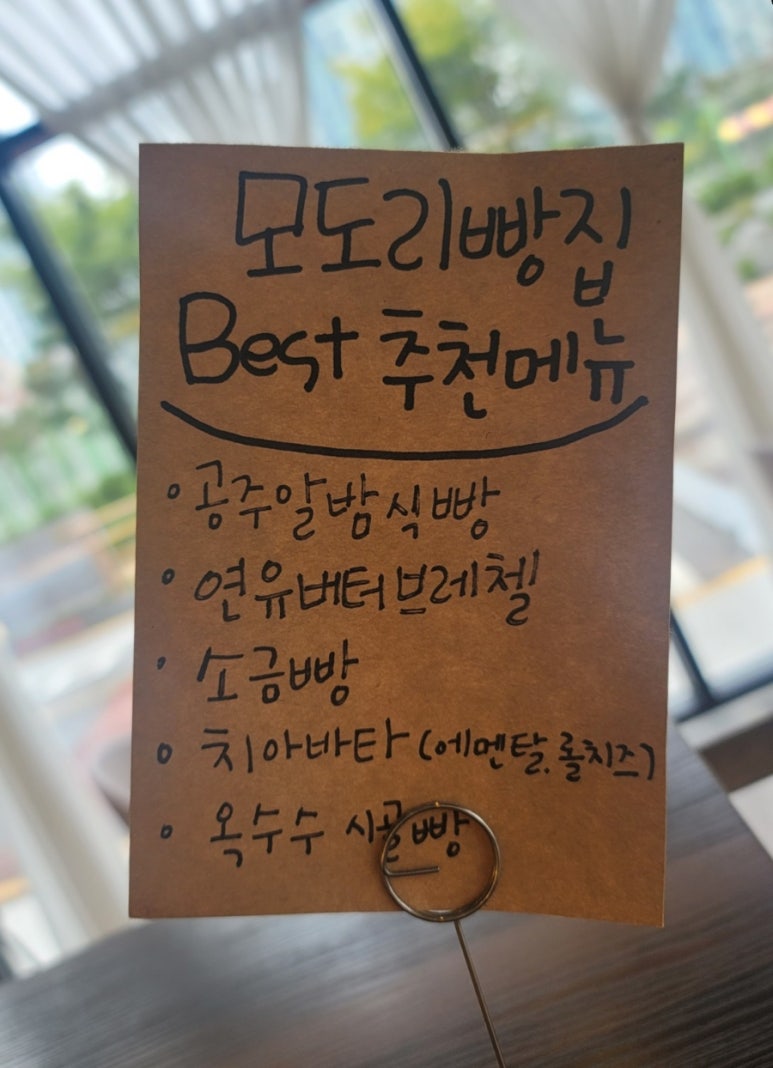 모도리빵집
Best 추천메뉴
• 공주알밤식빵
• 연유버터브레첼
• 소금빵
• 치아바타 (에멘탈.롤치즈)
• 옥수수 시골빵